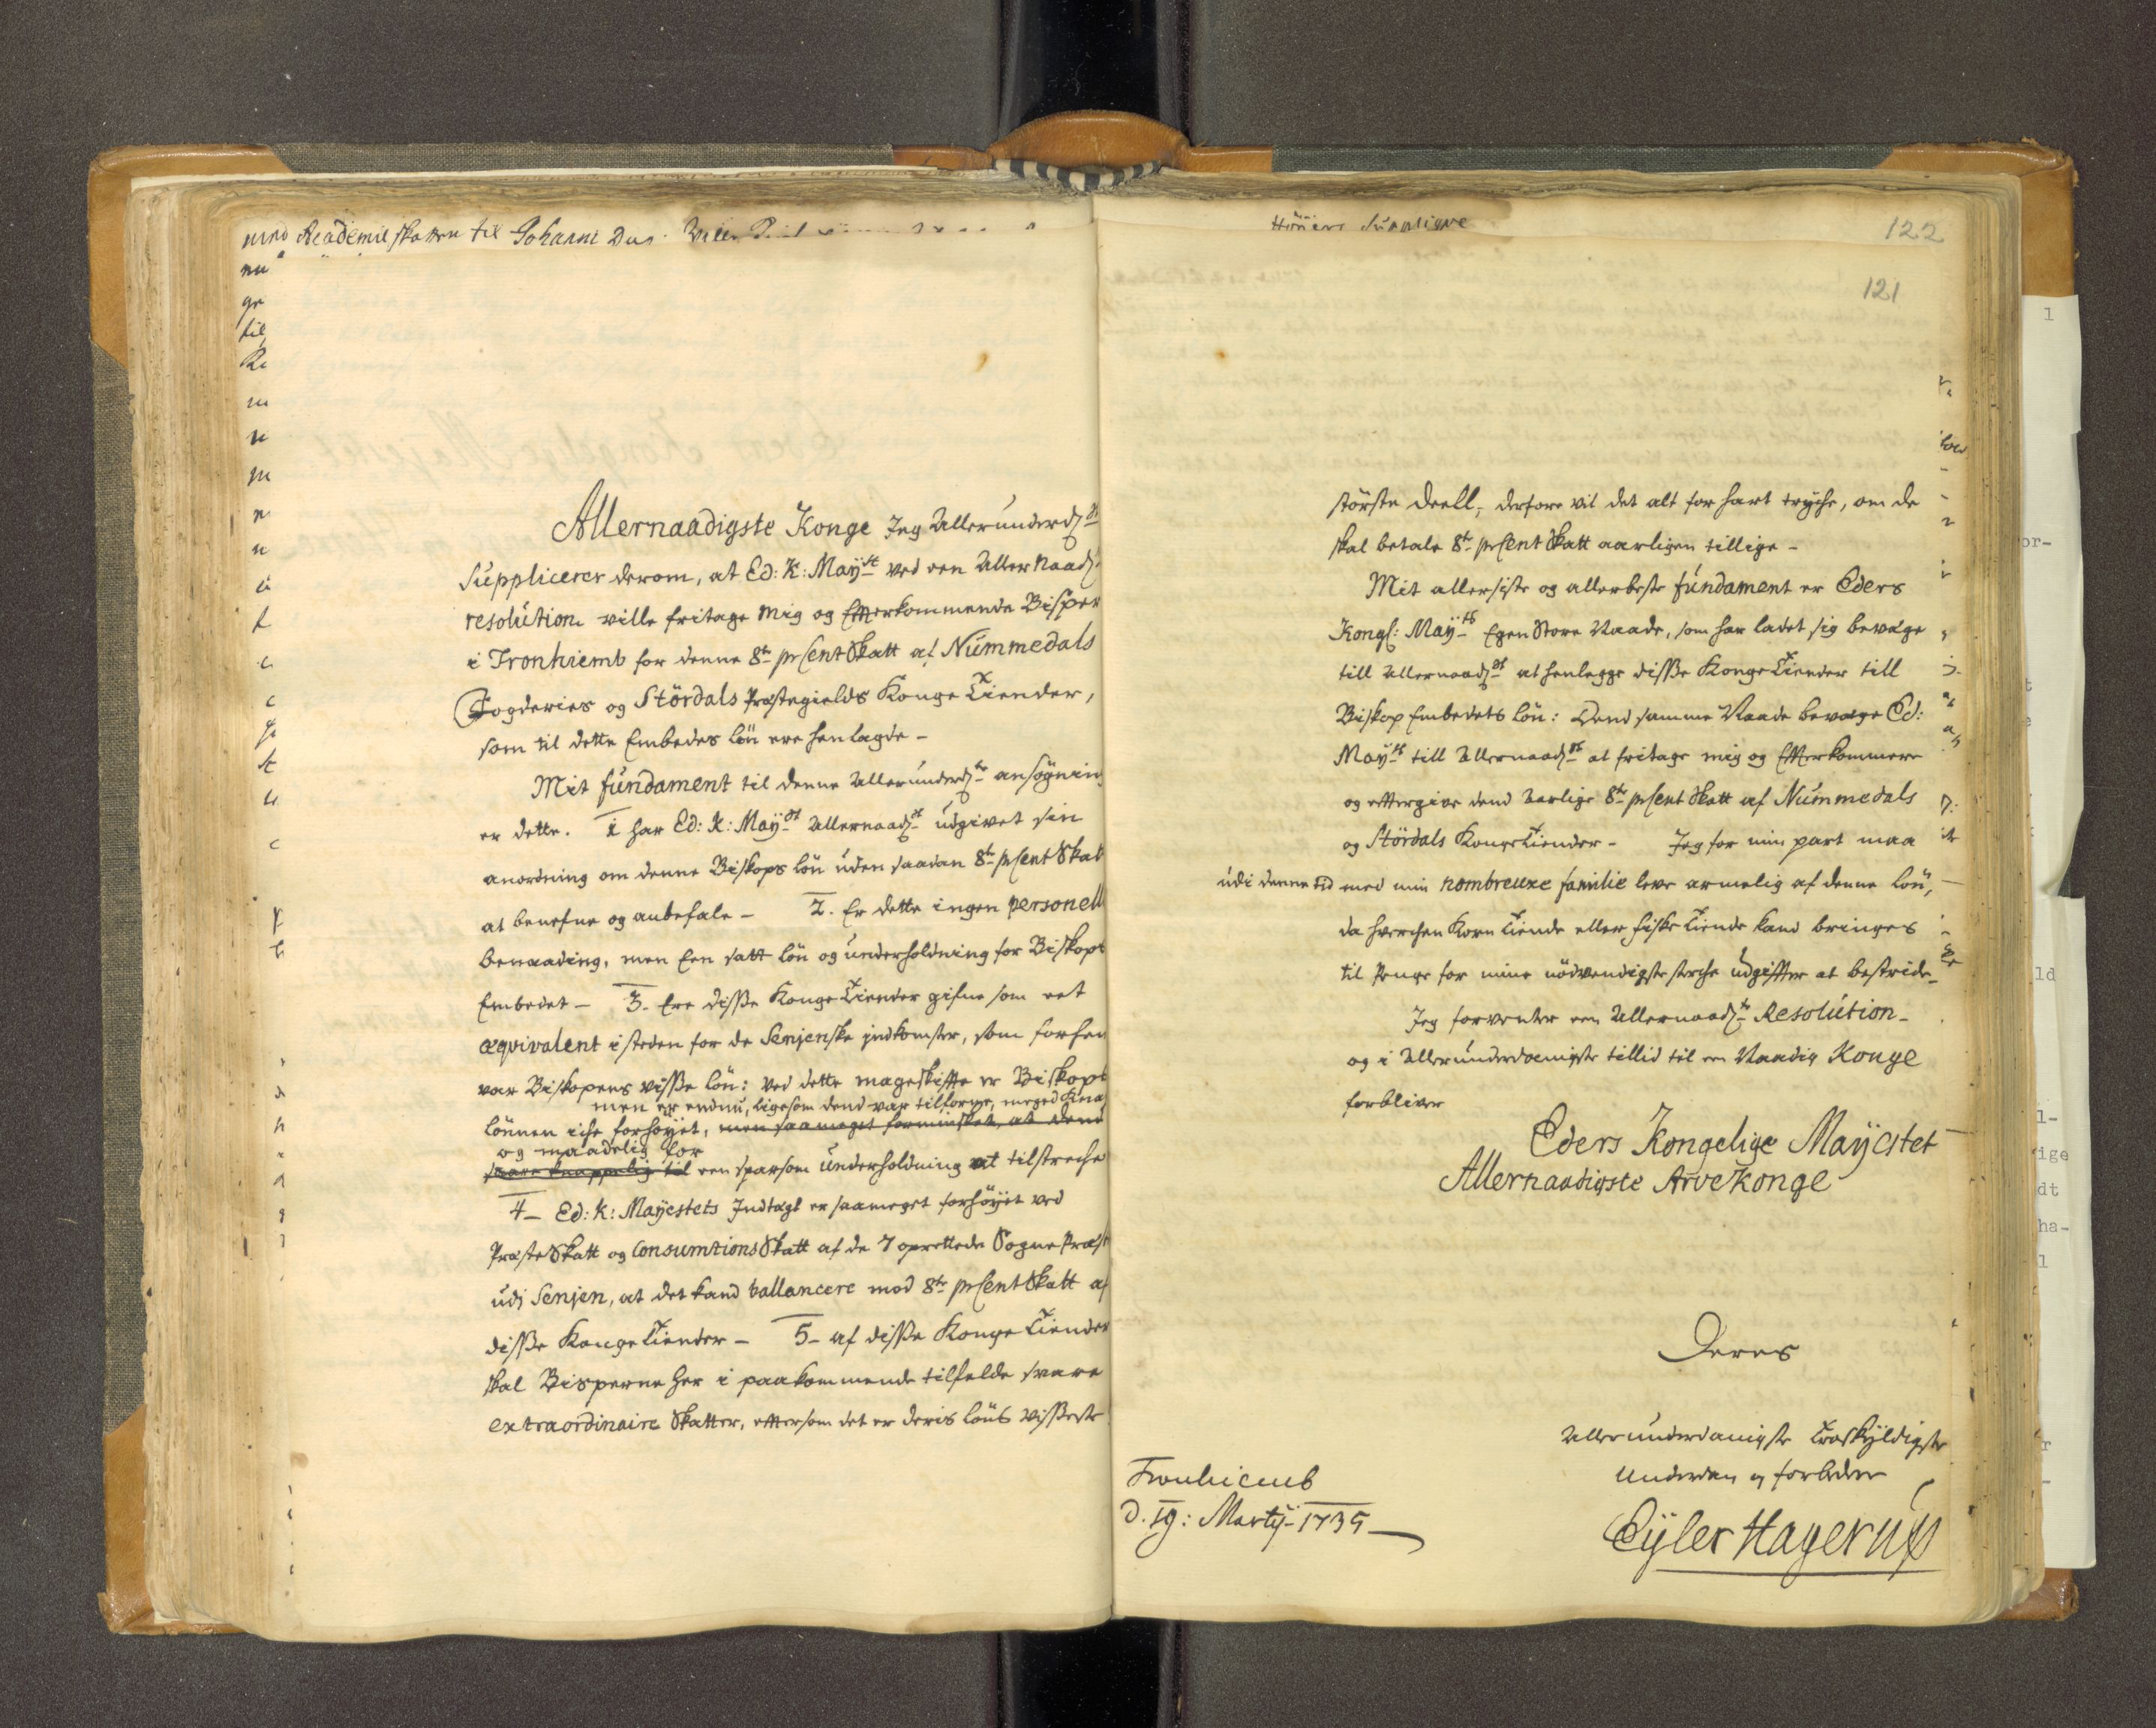 Academieskatten til Johanni
Allernaadigste Konge Jeg Allerunderd:st
Supplicerer derom, at Ed: K: Maÿst ved een Allernaad:
resolution ville fritage mig og Efterkommende Bisper
i Tronhiemb for denne 8te prCent Skatt af Nummedals
Fogderies og Stördals Præstegields Konge Tiender,
som til dette Embedes lön ere henlagde -
Mit fundament til denne Allerunderd:ste ansögning
er dette. 1 har Ed: K: Maÿst Allernaad:st udgivet sin
anordning om denne Biskops lön uden saadan 8te prCent Skat
at benefne og anbefale - 2. Er dette ingen personell
benaading, men Een satt lön og underholdning for Biskops
Embedet - 3. Ere disse Konge Tiender gifne som eet
æqvivalent isteden for de Senjenske indkomster, som forhen
var Biskopens visse lön: ved dette mageskiffte er Biskops
men er endnu, ligesom dend var tilforne, meged kna
lönnen iche forhöÿet, men saa meget forminsket, at dend
og maadelig for
saare knappelig til een sparsom underholdning at tilstreche
4 - Ed: K: Maÿestets Indtægt er saameget forhöÿet ved
Præste Skatt og Consumtions Skatt af de 7 oprettede Sogne Præst
udj Senjen, at det kand ballancere mod 8te prCent Skatt af
disse Konge Tiender - 5 - af disse Konge Tiender
skal Bisperne her i paakommende tilfelde svare
extraordinaire Skatter, eftersom det er deris löns visseste
Suppliqve
122
121
störste deell, derfore vil det alt for hart trÿche, om de
skal betale 8te prCent Skatt aarligen tillige -
Mit allersiste og allerbeste fundament er Eders
Kongl: Maÿts Egen Store Naade, som har ladet sig bevæge
till Allernaad:st at henlegge disse Konge Tiender till
Biskop Embedets lön: Dend samme Naade bevæge Ed:
Maÿts till Allernaad:st at fritage mig og Efterkommere
og eftergive dend aarlige 8te prCent Skatt af Nummedals
og Stördals Konge Tiender - Jeg for min part maa
udi denne tid med min nombreuxe familie leve armelig af denne lön,
da hverchen Korn Tiende eller fiske Tiende kand bringes
til Penge for mine nödvendigste sterche udgiffter at bestride -
Jeg forventer een Allernaad:ste Resolution -
og i Allerunderdanigste tillid til en Naadig Konge
forbliver
Eders Kongelige Maÿestet
Allernaadigste Arvekonge
Deres
Allerunderdanigste Troskÿldigste
Underdan og forbeder
Tronhiemb
d. 19: Martÿ - 1735
Eÿler Hagerup